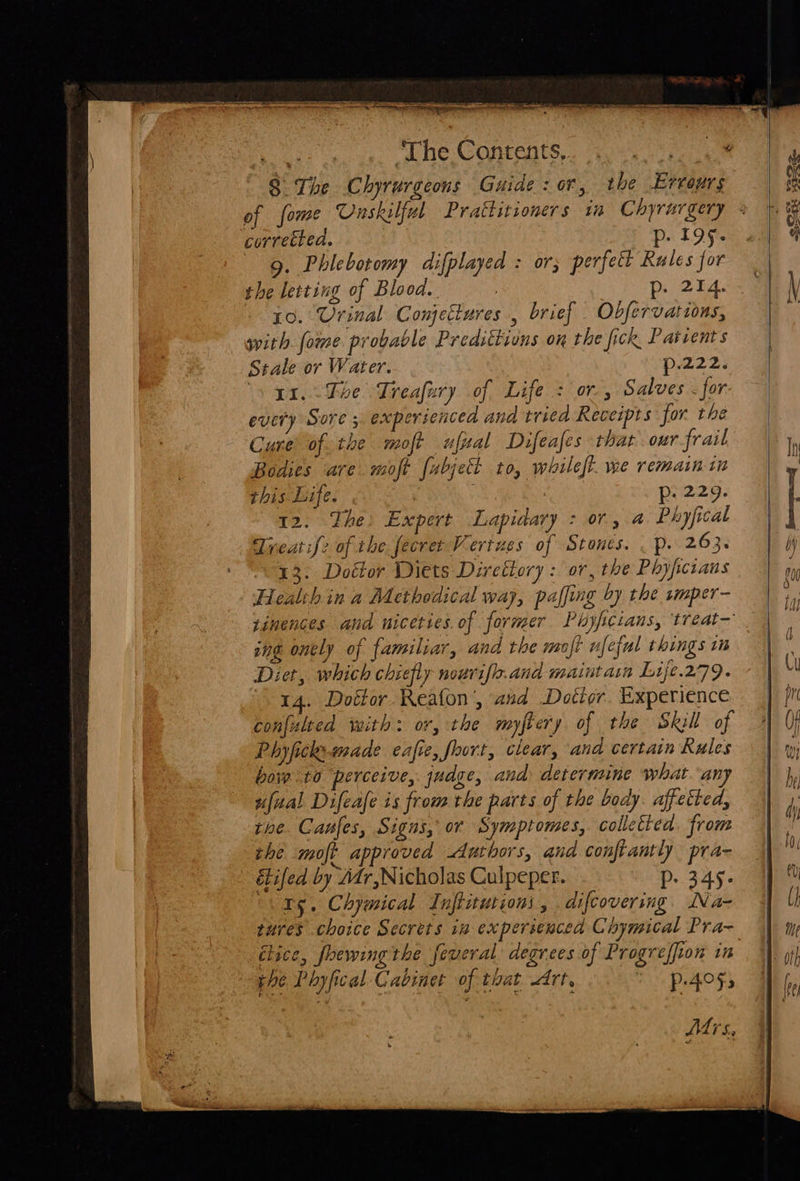 The Contents.
8 The Chyrurgeons Guide : or, the Errours
of ſome Unskilful Practitioners in Chyrurgery
corrected. p. 195.
9. Phlebotomy diſplayed : or, perfect Rules for
the letting of Blood. p. 214.
10. Urinal Conjectures, brief Obſervations,
with ſome probable Predictions on the ſick Patients
Stale or Water. p.222.
11. The Treaſury of Life : or, Salves for
every Sore ; experienced and tried Receipts for the
Cure of the moſt uſual Diſeaſes that our frail
Bodies are moſt ſubject to, whileſt we remain in
this Life. p. 229.
12. The Expert Lapidary : or, a Phyſical
Treatiſe of the ſecret Vertues of Stones. p. 263.
13. Doctor Diets Directory : or, the Phyſicians
Health in a Methodical way, paſſing by the imper-
tinences and niceties of former Phyſicians, treat-
ing onely of familiar, and the moſt uſeful things in
Diet, which chiefly nouriſh and maintain Life.279.
14. Doctor Reaſon, and Doctor Experience
conſulted with: or, the myſtery of the Skill of
Phyſick made eaſie, ſhort, clear, and certain Rules
how to perceive, judge, and determine what any
uſual Diſeaſe is from the parts of the body affected,
the Cauſes, Signs, or Symptomes, collected from
the moſt approved Authors, and conſtantly pra-
ctiſed by Mr, Nicholas Culpeper. p. 345.
15. Chymical Inſtitutions, diſcovering Na-
tures choice Secrets in experienced Chymical Pra-
ctice, ſhewing the ſeveral degrees of Progreſſion in
the Phyſical Cabinet of that Art. p.405,
Mrs,